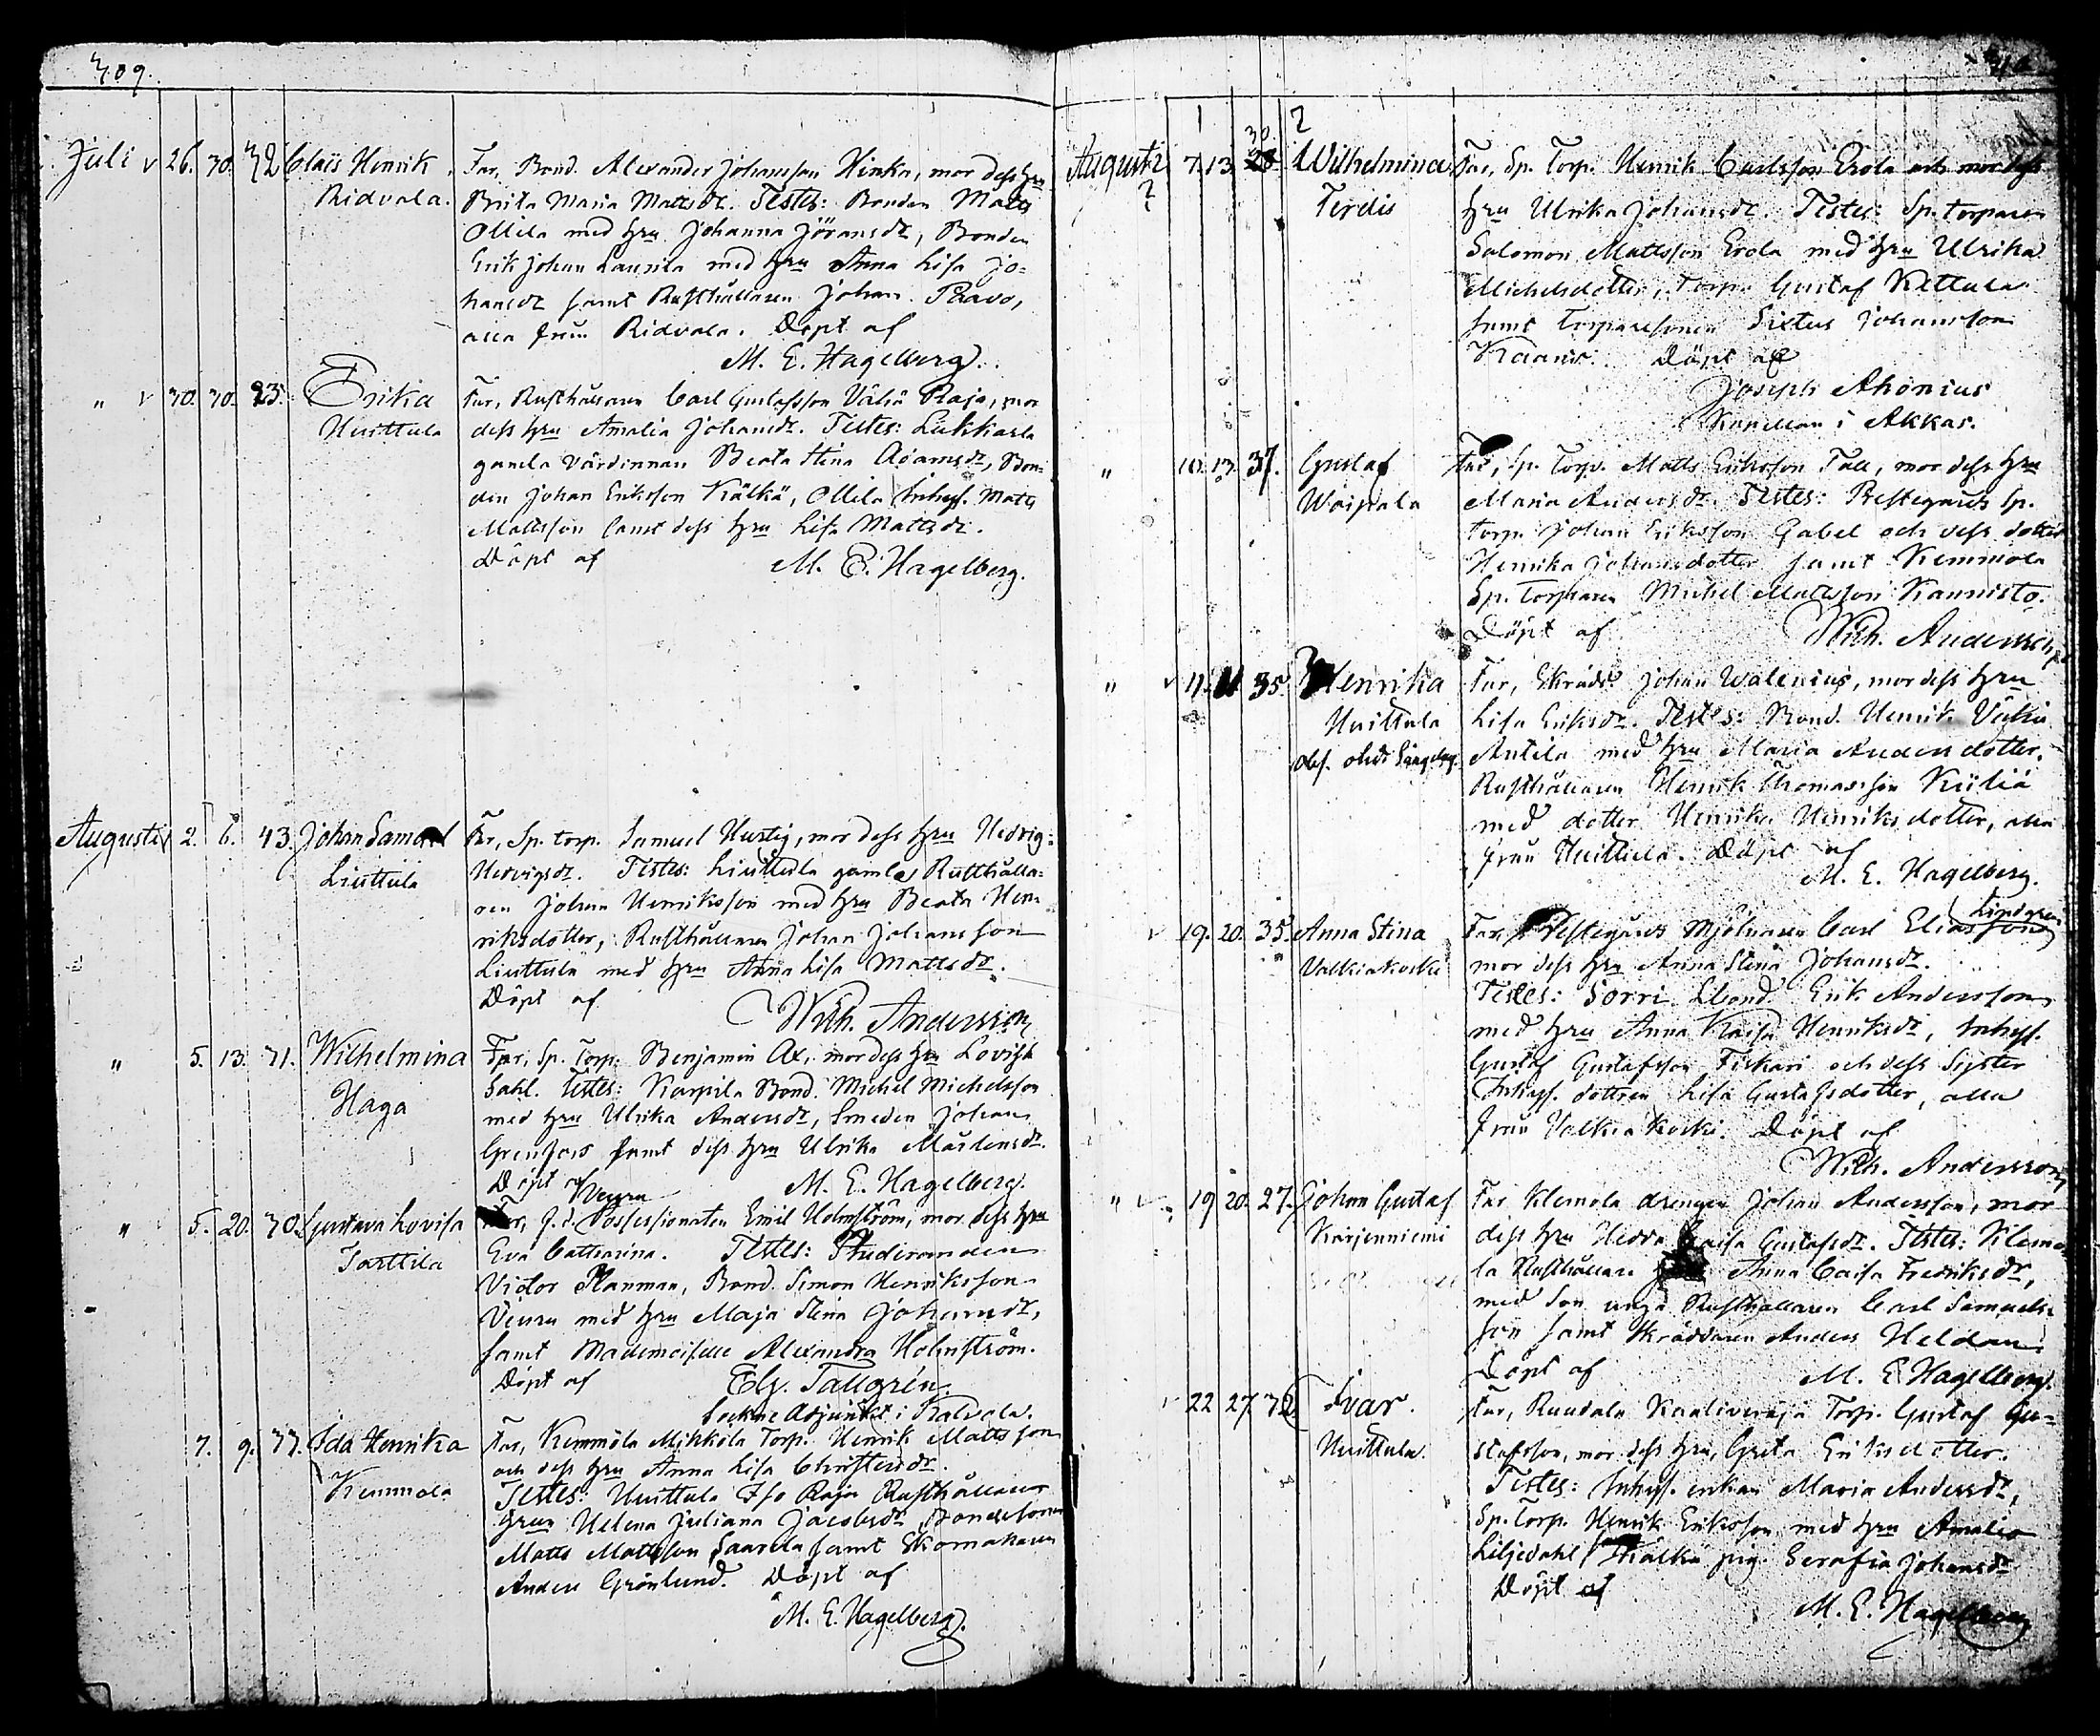 309.
Juli v 26. 30. 32 Claës Henrik Far, Bond. Alexander Johansson Hinka, mor dess hru
Ridvala. Brita Maria Mattsdr. Testes: Bonden Matts
Ollila med hru Johanna Jöransdr, Bonden
Erik Johan Laurila med hru Anna Lisa Jo=
hansdr samt Rusthållaren Johan Paavo,
alla från Ridvala. Döpt af
M. E. Hagelberg.
" v 30. 30. 23. Erika Far, Rusthållaren Carl Gustafsson Vähä Raja, mor
Huittula dess hru Amalia Johansdr. Testes: Lukkarla
gamla värdinnan Beata Stina Adamsdr, Bon=
den Johan Eriksson Kälkä, Ollila Inhys. Matts
Mattsson samt dess hru Lisa Mattsdr.
Döpt af M. E. Hagelberg.
Augusti 2. 6. 43. Johan Samuel Far, Sp. torp. Samuel Hurtig, mor dess hru Hedvig
Liuttula Hedvigsdr. Testes: Liuttula gamle Rusthålla=
ren Johan Henriksson med hru Beata Hen=
riksdotter, Rusthållaren Johan Johansson
Liuttula med hru Anna Lisa Mattsdr.
Döpt af
Wilh. Andersson
" 5. 13. 31. Wilhelmina Far, Sp. Torp. Benjamin Ax, mor dess hru Lovisa
Haga Sahl. Testes: Karpila Bond. Michel Michelsson
med hru Ulrika Andersdr, Smeden Johan
Grenfors samt dess hru Ulrika Mårtensdr.
Döpt af M. E. Hagelberg.
Veuru
" 5. 20. 30. Gustava Lovisa Far, f. d. Possessionaten Emil Holmström, mor dess hru
Tarttila Eva Catharina. Testes: Studeranden
Victor Planman, Bond. Simon Henriksson
Veuru med hru Maja Stina Johansdr,
samt Mademoiselle Alexandra Holmström.
Döpt af Elg. Tallgrén.
Sockne Adjunkt i Kalvola.
7. 9. 33. Ida Henrika Far, Kemmola Mikkola Torp. Henrik Mattsson
Kemmola och dess hru Anna Lisa Christersdr.
Testes: Huittula Iso Raja Rusthållare
hrun Helena Juliana Jacobsdr, Bondesonen
Matts Mattsson Saarela samt Skomakaren
Anders Grönlund. Döpt af
M. E. Hagelberg.
Augusti 7. 13. 30. 28. Wilhelmina Far, Sp. Torp. Henrik Carlsson Erola och mor dess
Terdis hru Ulrika Johansdr. Testes: Sp. torparen
Salomon Mattsson Erola med hru Ulrika
Michelsdotter, Torp. Gustaf Kettula
samt Torparesonen Sixtus Johansson
Kaanis. Döpt af
Joseph Ahonius
Kapellan i Akkas.
" 10. 13. 37. Gustaf Far, Sp. Torp. Matts Eriksson Tall, mor dess hru
Woipala Maria Andersdr. Testes: Prestegårds Sp.
torp. Johan Eriksson Gabel och dess dotter
Henrika Johansdotter samt Kemmola
Sp. Torparen Michel Mattsson Kannisto.
Döpt af Wilh. Andersson
" v 11. 35. Henrika Far, Skrädd. Johan Walenius, mor dess hru
Huittula Lisa Eriksdr. Testes: Bond. Henrik Vähä
Antila med hru Maria Andersdotter,
Rusthållaren Henrik Thomasson Kyliä
med dotter Henrika Henriksdotter, alla
från Huittula. Döpt af
M. E. Hagelberg.
Lindgren
v 19. 20. 35. Anna Stina Far, Prestegårds Mjölnaren Carl Eliasson
Valkiakoski mor dess hru Anna Stina Johansdr.
Testes: Sorri Lbond. Erik Andersson
med hru Anna Kaisa Henriksdr, Inhys.
Gustaf Gustafsson Fiskari och dess Syster
Inhys. dottren Lisa Gustafsdotter, alla
från Valkiakoski. Döpt af
Wilh. Andersson
" v 19 20. 27. Johan Gustaf Far Klemola drengen Johan Andersson, mor
Karjenniemi dess hru Hedda Caisa Gustafsdr. Testes: Klemo=
la Rusthållare Anna Caisa Fredriksdr,
med Son unga Rusthållaren Carl Samuels=
son samt Skräddaren Anders Heldan
Döpt af M. E. Hagelberg.
v 22 27. 32. Ivar. Far, Ruudala Kaaliveräjä Torp. Gustaf Gu=
Huittula. stafsson, mor dess hru, Greta Eriksdotter.
Testes: Inhys. enkan Maria Andersdr,
Sp. Torp. Henrik Eriksson med hru Amalia
Liljedahl, Kälkä pig. Serafia Johansdr
Döpt af
M. E. Hagelberg